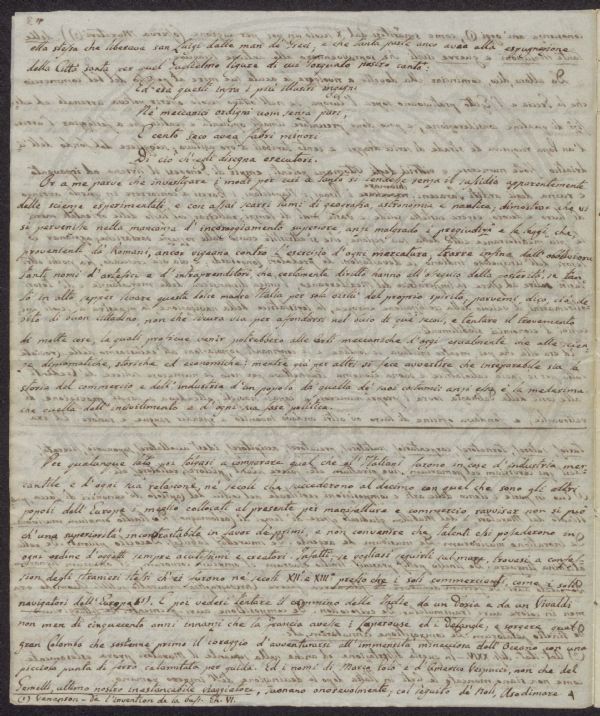 3
ella stessa che liberava san Luigi dalle mani de' Greci, e che tanta parte anco avea alla espugnazione
della Città santa per quel Guglielmo ligure di cui Torquato nostro canta:
Ed era questi infra i più illustri ingegni
Ne' meccanici ordigni uom senza pari,
E cento seco avea fabri minori
Di ciò ch'ei disegna esecutori.
Or a me parve che investigare i modi per cui a tanto si tendesse senza il sussidio apparentemente
delle scienze esperimentali, e con assai scarsi lumi di geografia, astronomia e nautica, dimostrar che vi
si pervenisse nella mancanza d'incoraggiamento superiore, anzi malgrado i pregiudizi e le leggi che
provenienti da' Romani, ancor vigeano contro l'esercizio d'ogni mercatura, trarre infine dall'oscurità
tanti nomi d'artefici e di intraprenditori che certamente diritto hanno all'ossequio della posterità, se tan-
to in alto sepper levare questa dolce madre Italia per soli ausili del proprio spirito, parvemi, dico, ciò de-
bito di buon cittadino non che sicura via per affondarsi nel buio di que' secoli, e tentare il trovamento
di molte cose, le quali proficue venir potrebbero alle arti meccaniche d'oggi egualmente che alle scien-
ze diplomatiche, storiche ed economiche; mentre già per altri si fece avvertire che inseparabile sia la
storia del commercio e dell'industria d'un popolo da quella de' suoi costumi: anzi ella è la medesima
che quella dell'incivilimento e d'ogni sua fase politica.
Per qualunque lato poi tornisi a comparare quel che gl'Italiani furono in cose d'industria mer-
cantile e d'ogni sua relazione, ne' secoli che succederono al decimo con quel che sono gli altri
popoli dell'Europa i meglio collocati al presente per manifatture e commercio, ravvisar non si può
ch'una superiorità incontrastabile in favor de' primi, e non convenire che talenti ch'ei possederono in
ogni ordine d'oggetti sempre acutissimi e creatori. Infatti, se vogliasi seguirli sul mare, trovasi a confes-
sion degli stranieri stessi ch'ei furono ne' secoli XII e XIII presso che i soli commercianti, come i soli
navigatori dell'Europa (1). E poi vederli tentare il cammino delle Indie da un Doria e da un Vivaldi
non men di cinquecento anni innanzi che la Francia avesse i Laperouse ed i Delangle, e sorgere quel
gran Colombo che sostenne primo il coraggio d'avventurarsi all'immensità minacciosa dell'Oceano con una
picciola punta di ferro calamitato per guida. Ed i nomi di Marco Polo e d'Amerigo Vespucci, non che del
Gemelli, ultimo nostro instancabile viaggiatore, suonano onorevolmente, coi seguito de' Noli, Usodimare
(1) Venanson - De l'invention de la Bussole. Ch. VI.